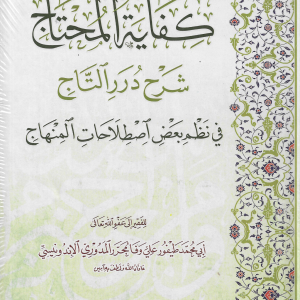 كِفَايَةُ المُحْتَاجِ
شَرْحُ دُرَرِ التَّاجِ
فِي نَظْمِ بَعْضِ اصْطِلَاحَاتِ المِنْهَاجِ
لِلْفَقِيرِ إِلَى عَفْوِ اللهِ تَعَالَى
أَبِي مُحَمَّد طَيْفُور عَلِيّ وَفَا المُحَرَّر المَدُورِيّ الإِنْدُونِيسِيّ